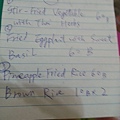 Stir-Fried Vegetable 60฿
with Thai Herbs
Fried Eggplant with Sweet
Basil 60฿
Pineapple Fried Rice 60฿
Brown Rice 10฿ x 2